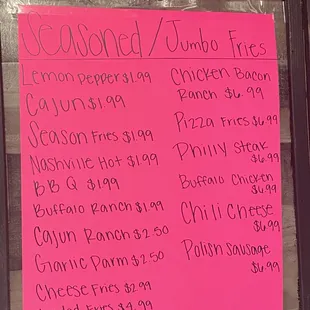 Seasoned / Jumbo Fries
Lemon Pepper $1.99
Cajun $1.99
Season Fries $1.99
Nashville Hot $1.99
BBQ $1.99
Buffalo Ranch $1.99
Cajun Ranch $2.50
Garlic Parm $2.50
Cheese Fries $2.99
Fries $4.99
Chicken Bacon
Ranch $6.99
Pizza Fries $6.99
Philly Steak
$6.99
Buffalo Chicken
$6.99
Chili Cheese
$6.99
Polish Sausage
$6.99